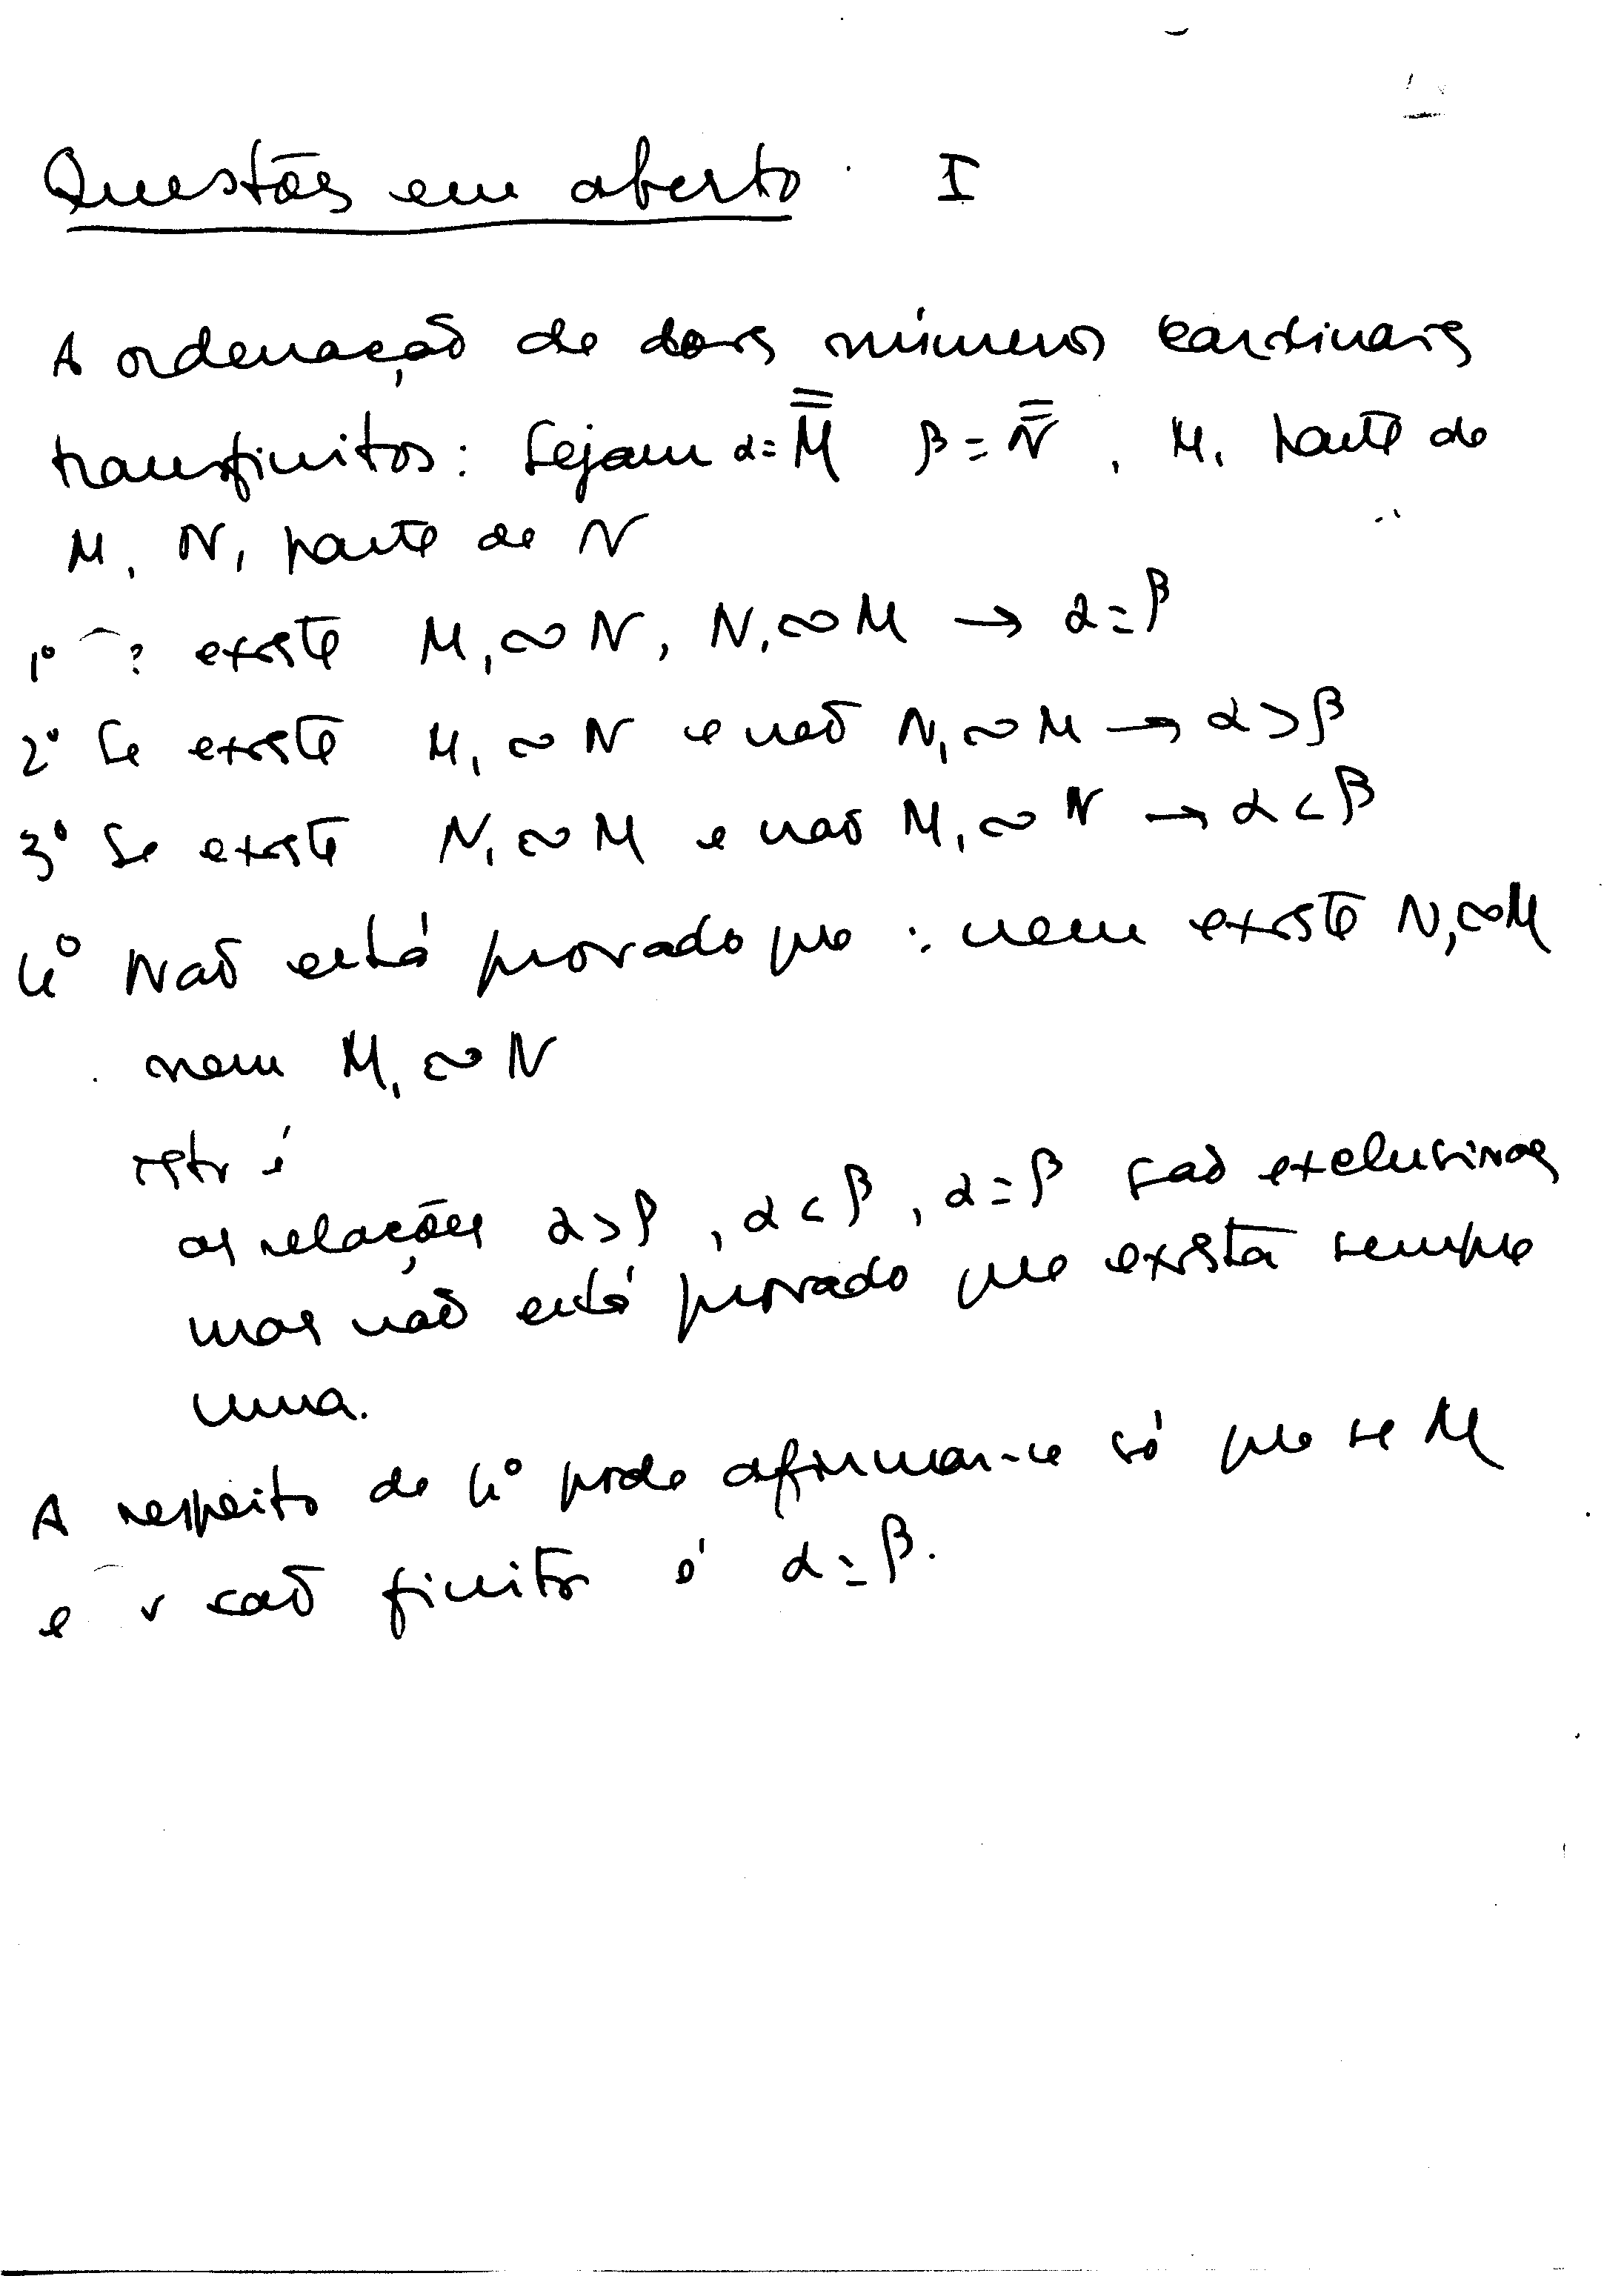 Questões em aberto I
A ordenação de dois números cardinais
transfinitos: Sejam α = M̿ β = N̿, M₁ parte de
M, N₁ parte de N
1º existe M₁ ∾ N, N₁ ∾ M → α = β
2º Se existe M₁ ∾ N e não N₁ ∾ M → α > β
3º Se existe N₁ ∾ M e não M₁ ∾ N → α < β
4º Não está provado que: nem existe N₁ ∾ M
nem M₁ ∾ N
isto é
as relações α > β, α < β, α = β são exclusivas
mas não está provado que exista sempre
uma.
A respeito de 4º pode afirmar-se só que se M
e são finitos é α = β.